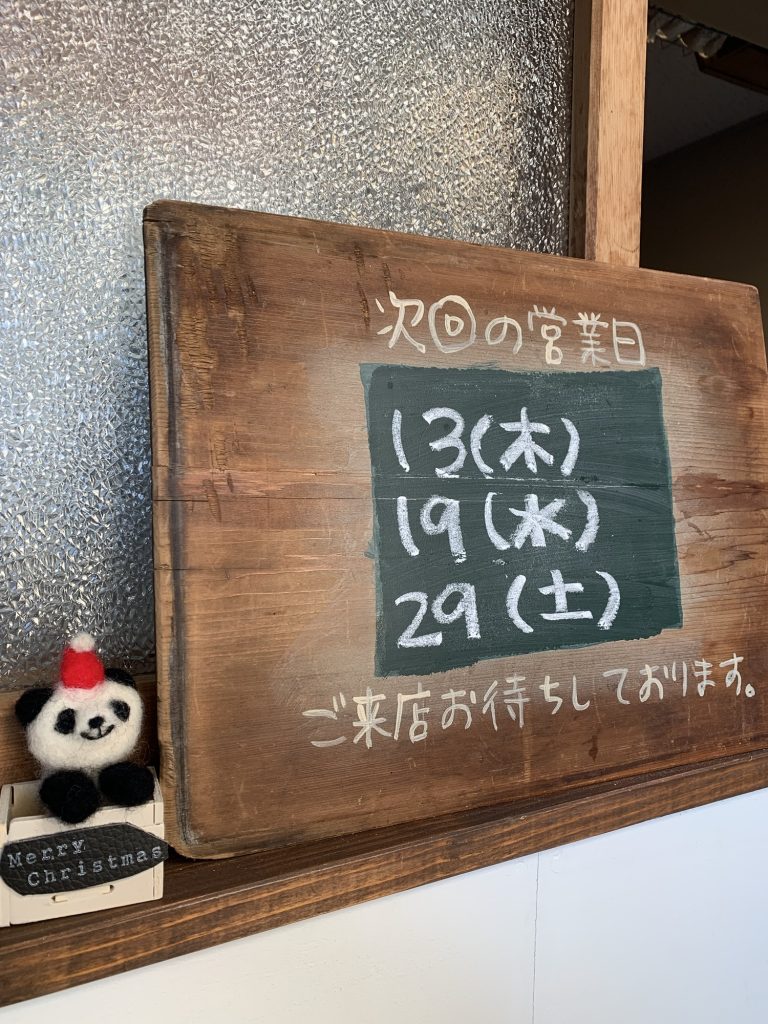 次回の営業日
13(木)
19(水)
29(土)
ご来店お待ちしております。
Merry
Christmas